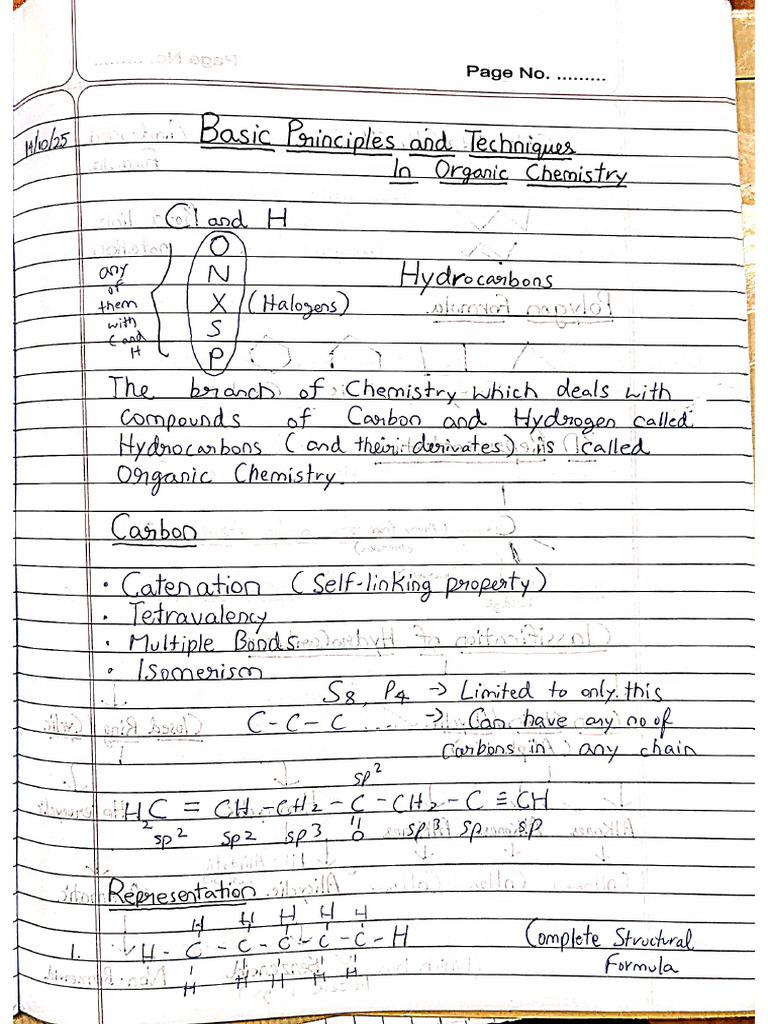 Page No. .........
14/10/25
Basic Principles and Techniques
In Organic Chemistry
C and H
O
N
X (Halogens)
S
P
any
of
them
with
C and
H
Hydrocarbons
The branch of Chemistry which deals with
compounds of Carbon and Hydrogen called
Hydrocarbons (and their derivates) is called
Organic Chemistry.
Carbon
• Catenation (Self-linking property)
• Tetravalency
• Multiple Bonds
• Isomerism
S8, P4 → Limited to only this
C-C-C ... → Can have any no of
Carbons in any chain
sp2
H2C = CH - CH2 - C - CH2 - C ≡ CH
sp2 sp2 sp3 O sp3 sp sp
Representation
H H H H H
1. H - C - C - C - C - C - H Complete Structural
Formula
H H H H H